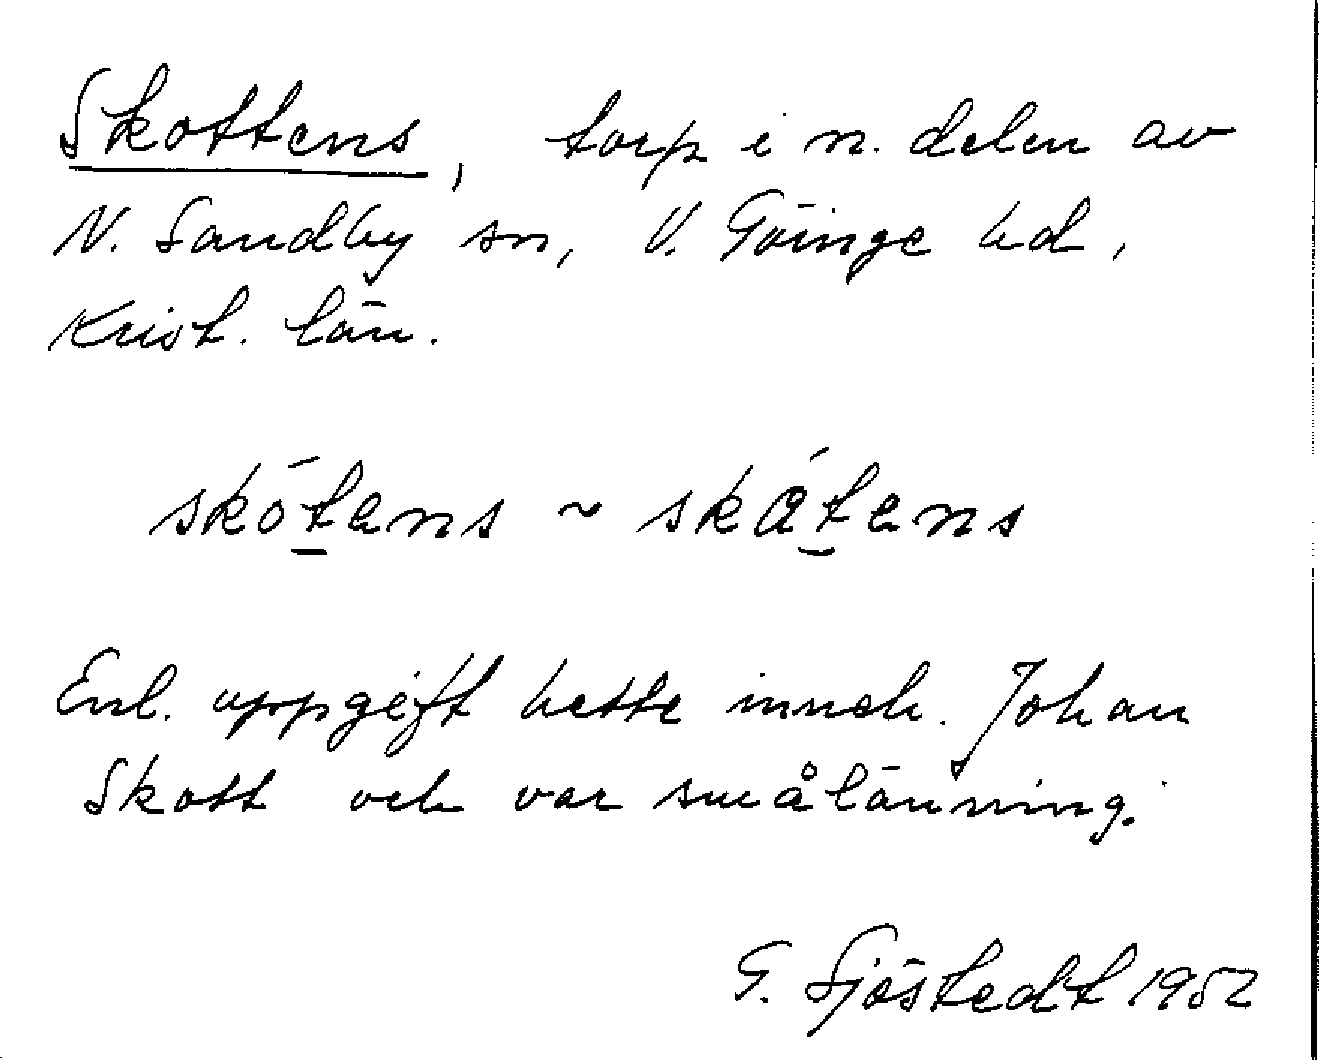 Skottens, torp i n. delen av
N. Sandby sn, V. Göinge hd,
Krist. län.
skót̠ens ~ skát̮ens
Enl. uppgift hette inneh. Johan
Skott och var smålänning.
G. Sjöstedt 1952